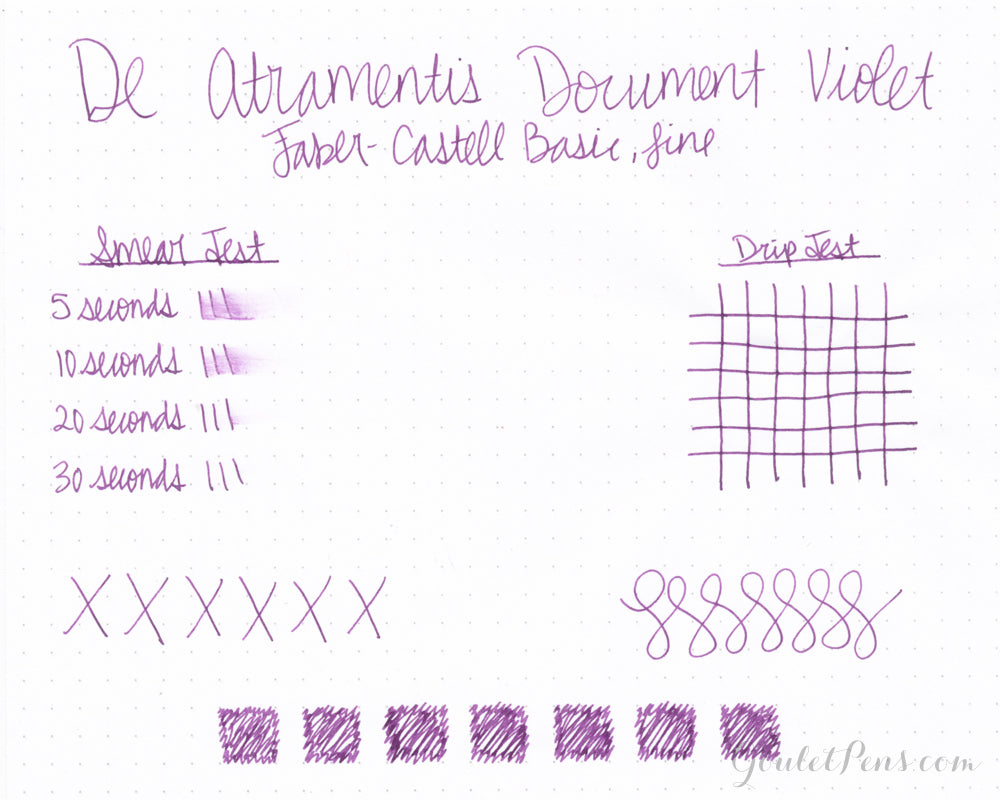 De Atramentis Document Violet
Faber-Castell Basic, fine
Smear Test
5 seconds
10 seconds
20 seconds
30 seconds
Drip Test
X X X X X X
GouletPens.com